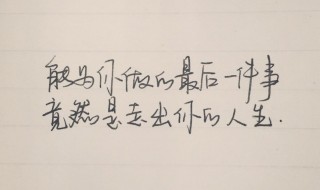 能为你做的最后一件事
竟然是走出你的人生.